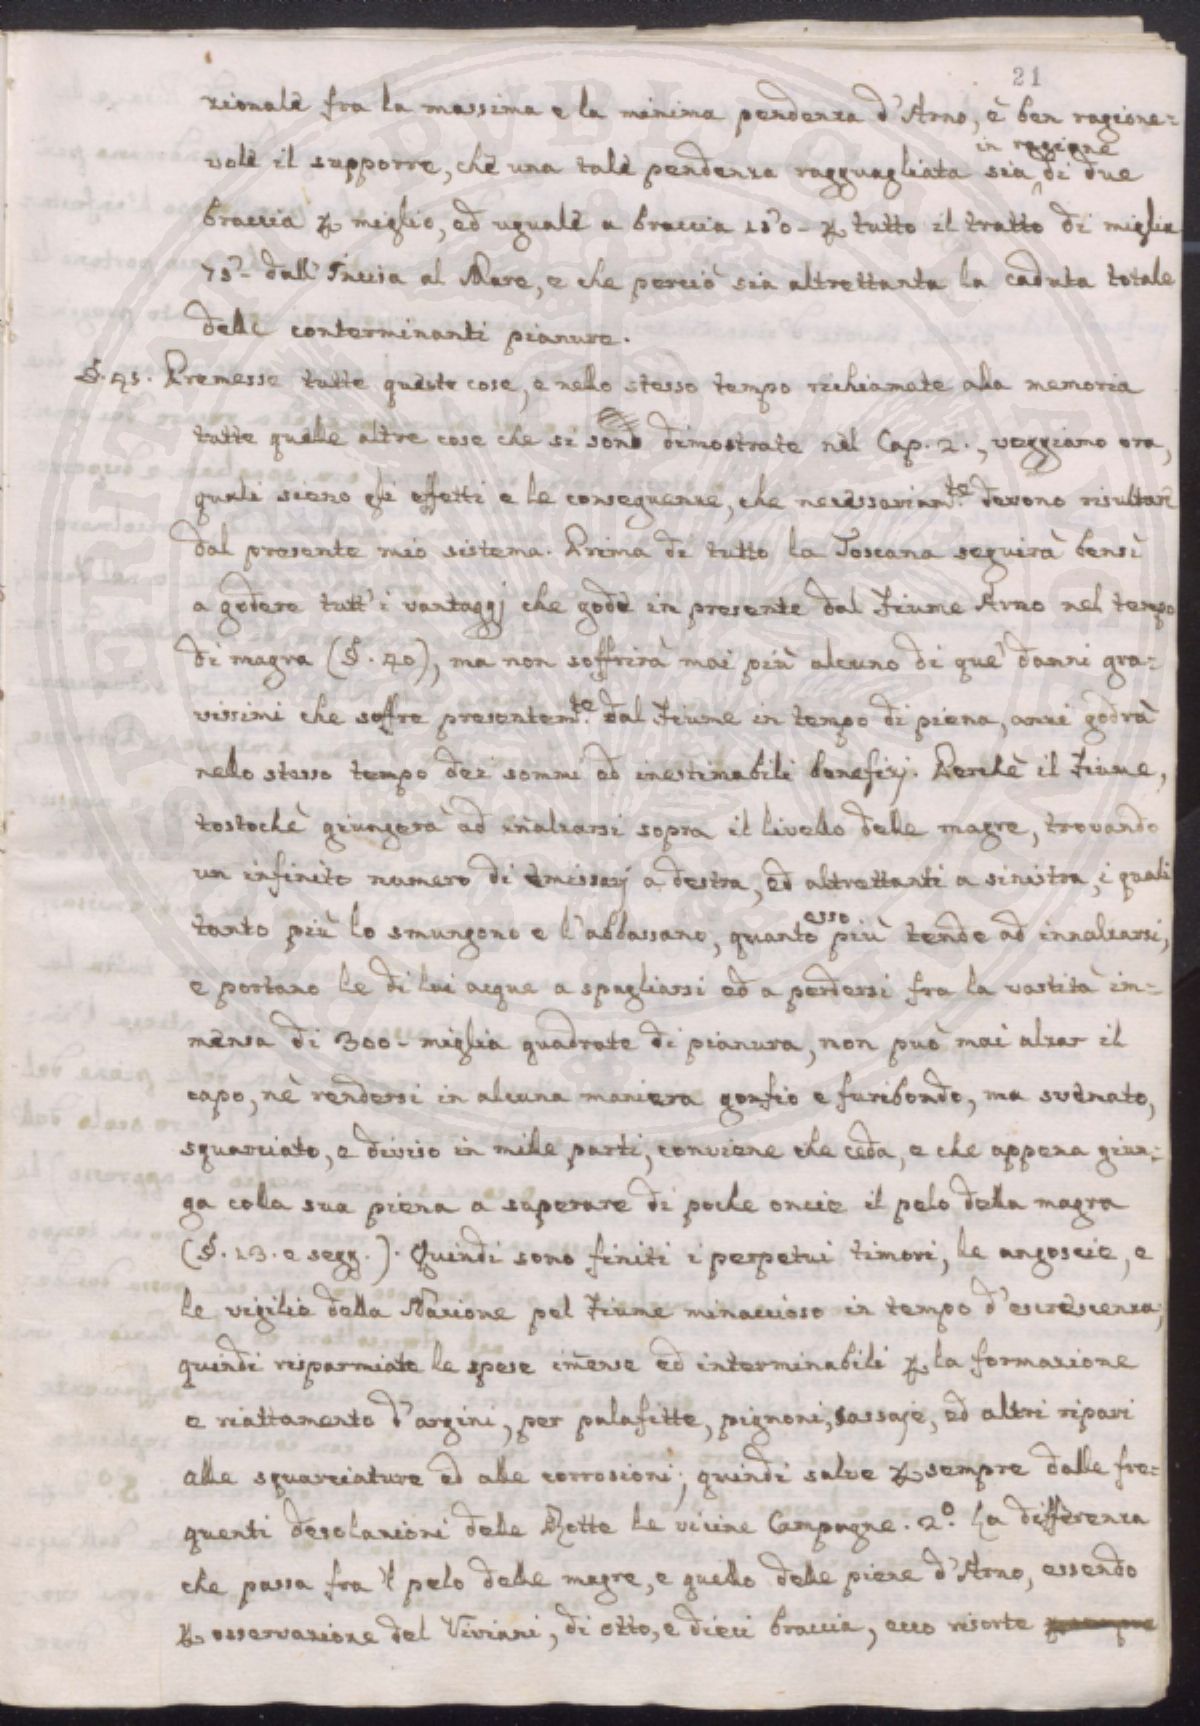 21
zionale fra la massima e la minima pendenza d'Arno, è ben ragione-
in ragione
vole il supporre, che una tale pendenza ragguagliata sia di due
braccia p miglio, ed uguale a braccia 150 - p tutto il tratto di miglia
75 - dall'Incisa al Mare, e che perciò sia altrettanta la caduta totale
delle conterminanti pianure.
§. 45. Premesse tutte queste cose, e nello stesso tempo richiamate alla memoria
tutte quelle altre cose che si sono dimostrate nel Cap. 2., veggiamo ora,
quali sieno gli effetti e le conseguenze, che necessariam.te devono risultare
dal presente mio sistema. Prima di tutto la Toscana seguirà bensì
a godere tutt'i vantaggj che gode in presente dal Fiume Arno nel tempo
di magra (§. 40), ma non soffrirà mai più alcuno di que' danni gra-
vissimi che soffre presentem.te dal Fiume in tempo di piena, anzi godrà
nello stesso tempo dei sommi ed inestimabili benefizj. Perchè il Fiume,
tostochè giungerà ad inalzarsi sopra il livello delle magre, trovando
un infinito numero di emissarj a destra, ed altrettanti a sinistra, i quali
esso
tanto più lo smungono e l'abbassano, quanto più tende ad innalzarsi,
e portano le di lui acque a spagliarsi ed a perdersi fra la vastità im-
mensa di 300 - miglia quadrate di pianura, non può mai alzar il
capo, nè rendersi in alcuna maniera gonfio e furibondo, ma svenato,
squarciato, e diviso in mille parti, conviene che ceda, e che appena giun-
ga colla sua piena a superare di poche oncie il pelo della magra
(§. 13. e segg.). Quindi sono finiti i perpetui timori, le angoscie, e
le vigilie della Nazione pel Fiume minaccioso in tempo d'escrescenza;
quindi risparmiate le spese im̃ense ed interminabili p la formazione
e riattamento d'argini, per palafitte, pignoni, sassaje, ed altri ripari
alle squarciature ed alle corrosioni; quindi salve p sempre dalle fre-
quenti desolazioni delle Rotte le vicine Campagne. 2.º La differenza
che passa fra 'l pelo delle magre, e quello delle piene d'Arno, essendo
p osservazione del Viviani, di otto, e dieci braccia, ecco risorte